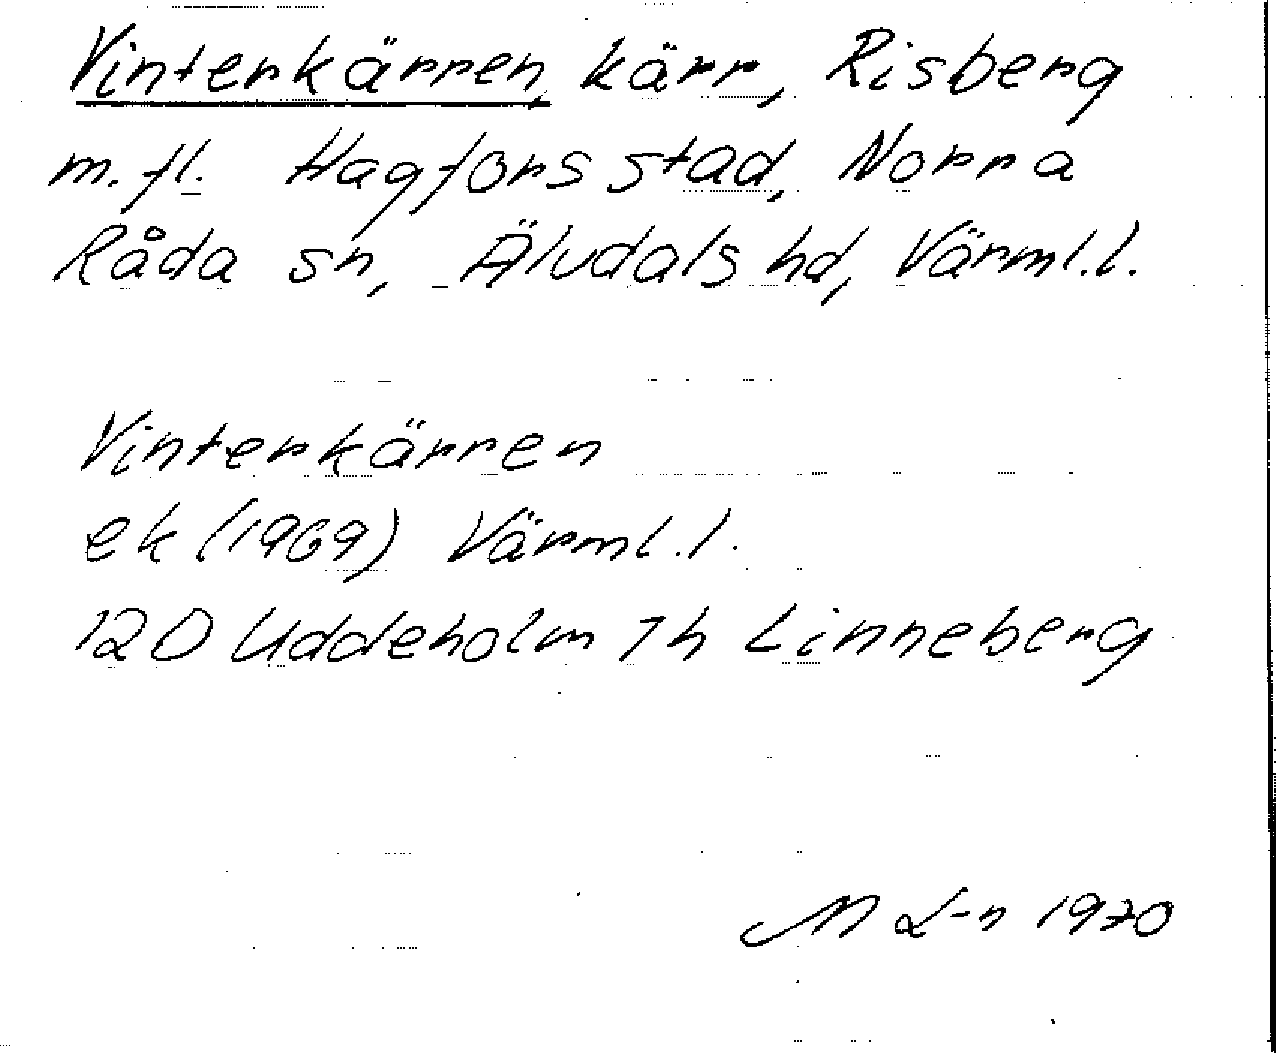 Vinterkärren, kärr, Risberg
m.fl. Hagfors stad, Norra
Råda sn, Älvdals hd, Värml.l.
Vinterkärren
ek (1969) Värml.l.
12D Uddeholm 7h Linneberg
M L-n 1970